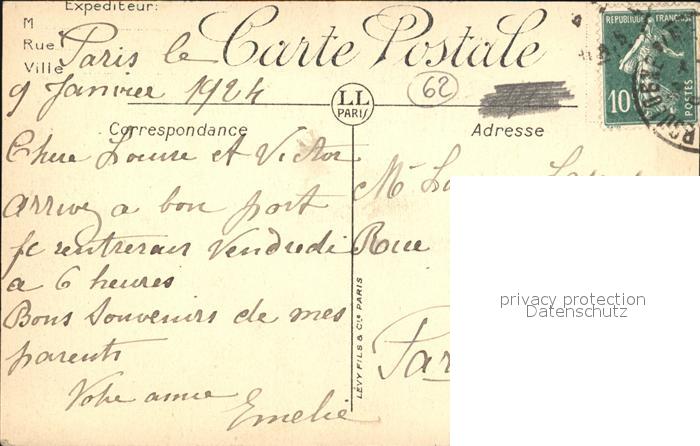 Expediteur:
M
Rue
Ville
Carte Postale
REPUBLIQUE FRANÇAISE
10
POSTES
Paris le
9 Janvier 1924
62
LL
PARIS
Correspondance
Adresse
Chere Louise et Victor
arrivez a bon port
je rentrerais Vendredi
a 6 heures
Bons Souvenirs de mes
parents
Votre amie
Emelie
LEVY FILS & Cie PARIS
Mr
Rue
Par
privacy protection
Datenschutz